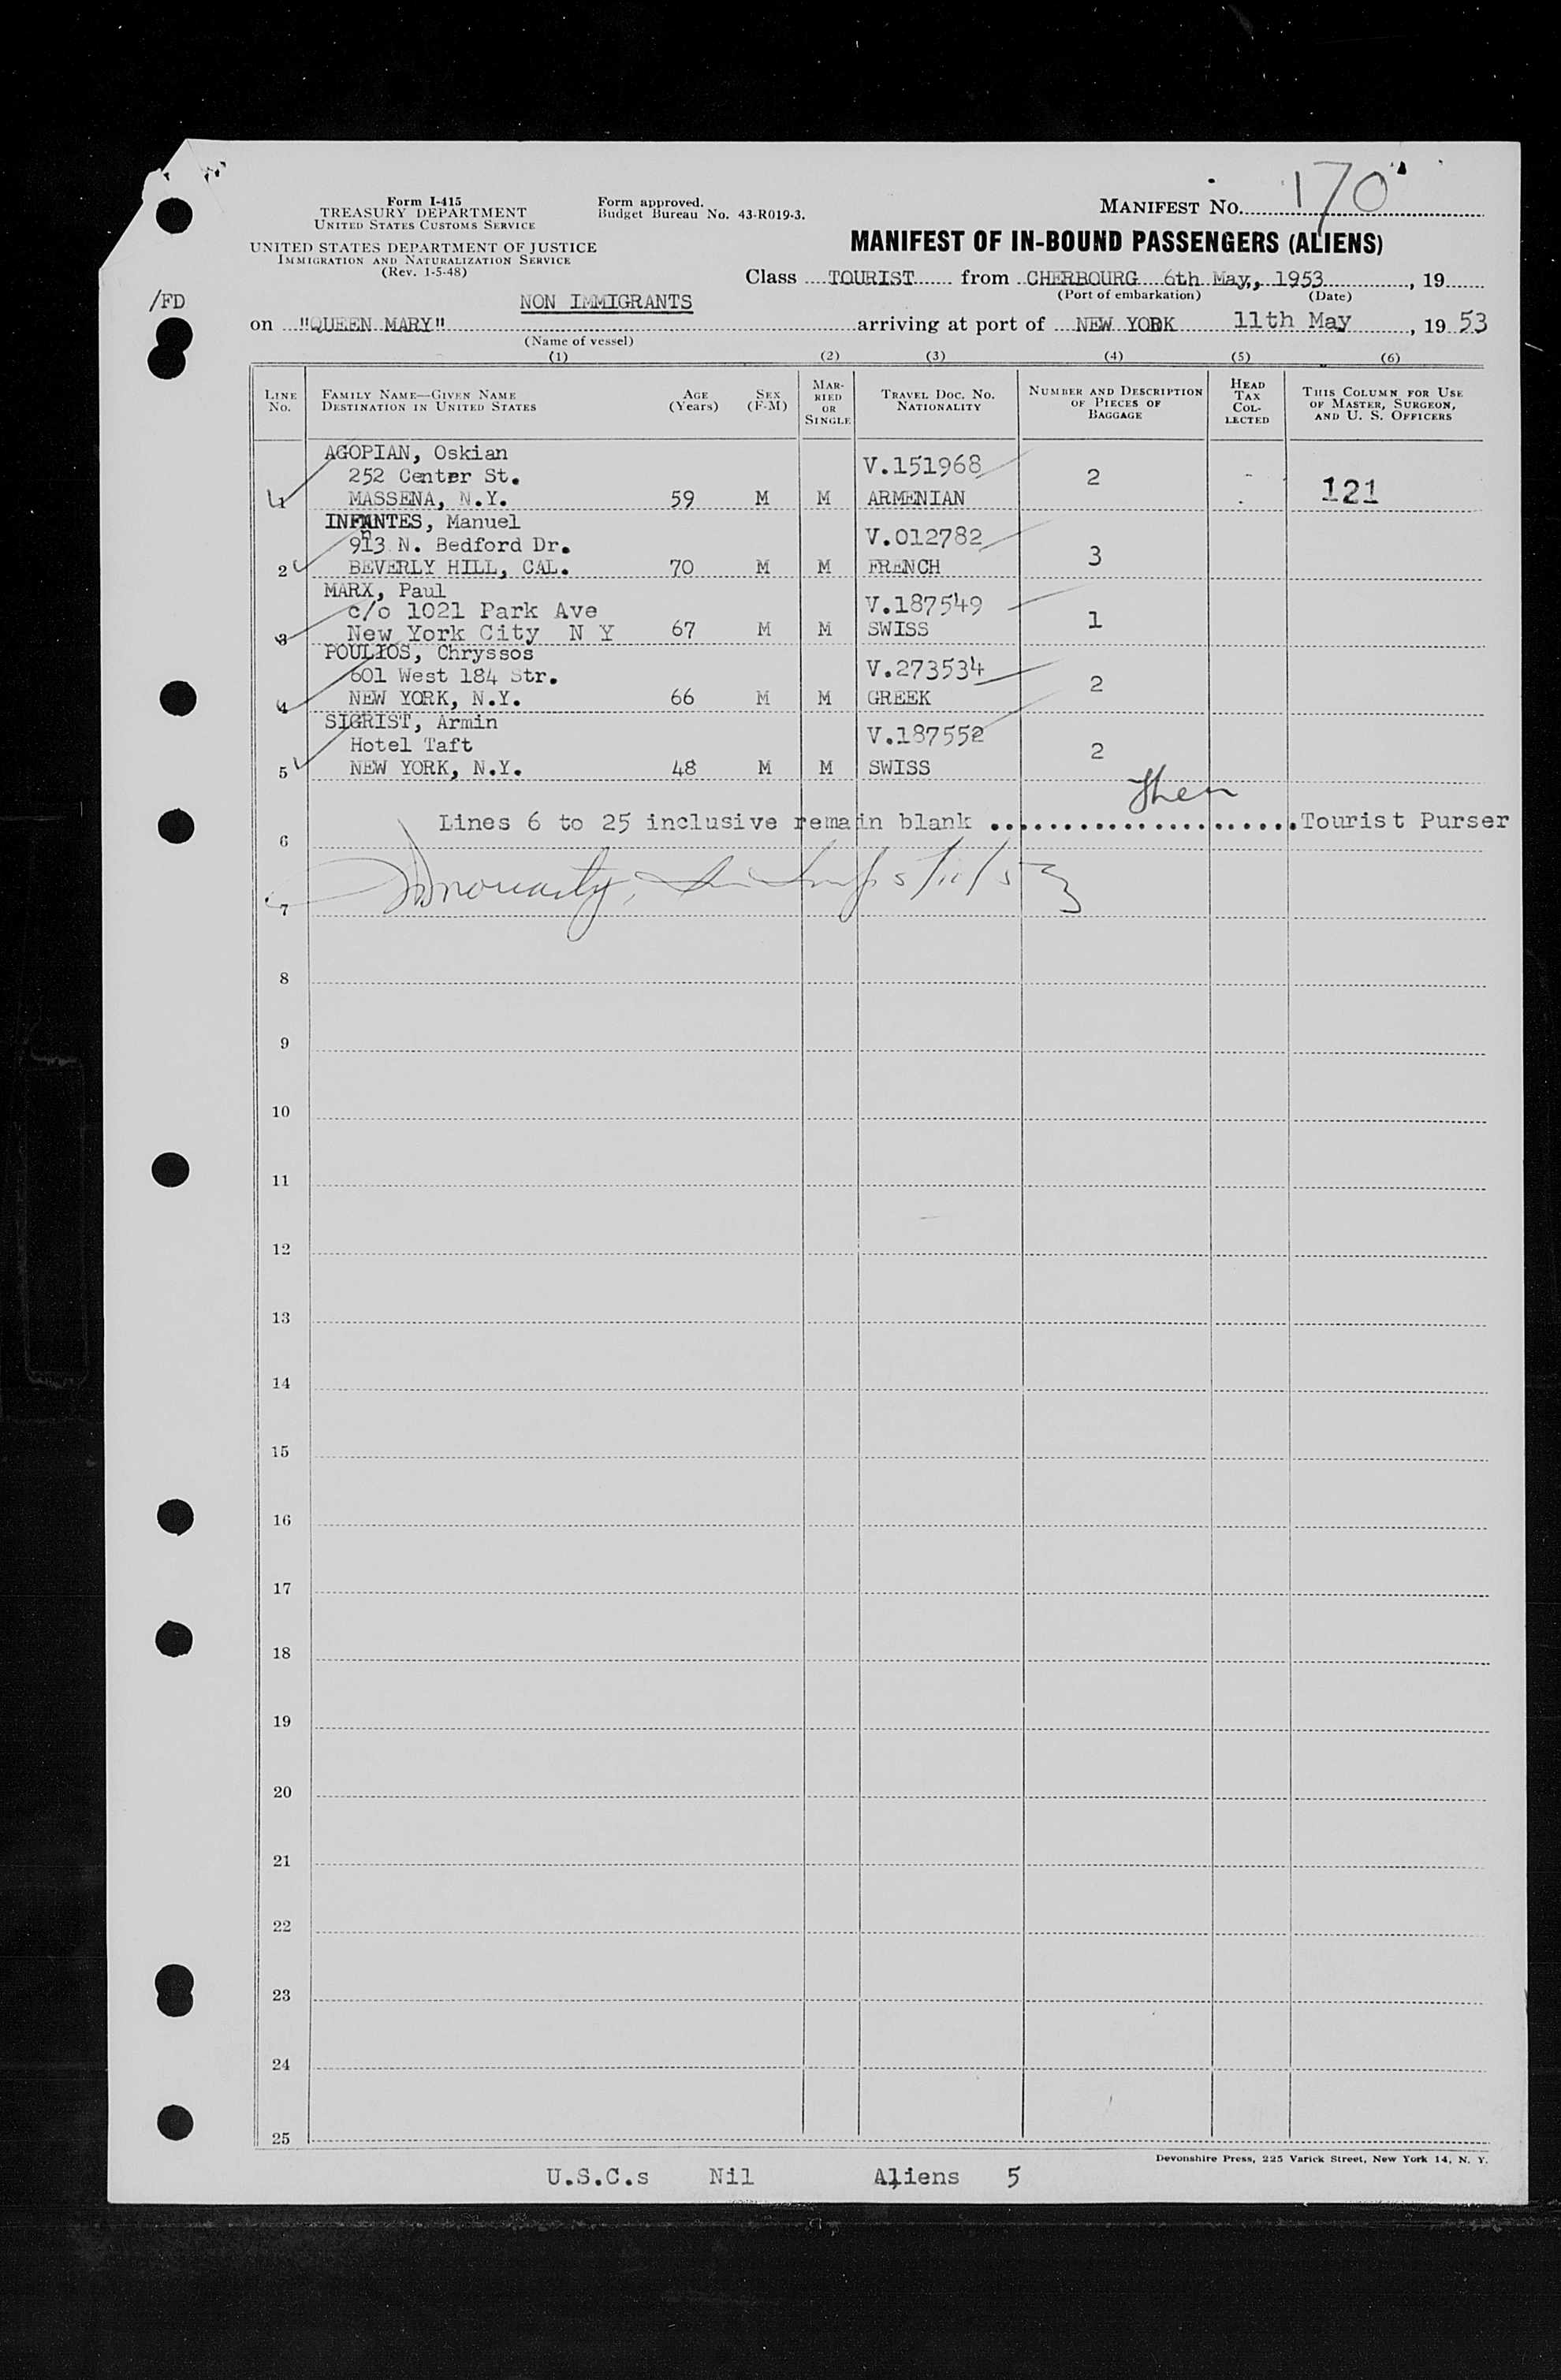 170
Form I-415
TREASURY DEPARTMENT
UNITED STATES CUSTOMS SERVICE
Form approved.
Budget Bureau No. 43-R019-3.
MANIFEST NO.
UNITED STATES DEPARTMENT OF JUSTICE
IMMIGRATION AND NATURALIZATION SERVICE
(Rev. 1-5-48)
MANIFEST OF IN-BOUND PASSENGERS (ALIENS)
Class TOURIST from CHERBOURG 6th May,, 1953, 19
(Port of embarkation) (Date)
/FD
NON IMMIGRANTS
on "QUEEN MARY" arriving at port of NEW YORK 11th May, 19 53
(Name of vessel)
(1) (2) (3) (4) (5) (6)
LINE No. FAMILY NAME—GIVEN NAME DESTINATION IN UNITED STATES AGE (Years) SEX (F-M) MARRIED OR SINGLE TRAVEL DOC. NO. NATIONALITY NUMBER AND DESCRIPTION OF PIECES OF BAGGAGE HEAD TAX COLLECTED THIS COLUMN FOR USE OF MASTER, SURGEON, AND U. S. OFFICERS
AGOPIAN, Oskian
252 Center St. V.151968 2
1 MASSENA, N.Y. 59 M M ARMENIAN 121
INFANTES, Manuel
913 N. Bedford Dr. V.012782 3
2 BEVERLY HILL, CAL. 70 M M FRENCH
MARX, Paul
c/o 1021 Park Ave V.187549 1
3 New York City N Y 67 M M SWISS
POULIOS, Chryssos
601 West 184 Str. V.273534 2
4 NEW YORK, N.Y. 66 M M GREEK
SIGRIST, Armin
Hotel Taft V.187552 2
5 NEW YORK, N.Y. 48 M M SWISS
Lines 6 to 25 inclusive remain blank ......................Tourist Purser
6
5/11/53
7
8
9
10
11
12
13
14
15
16
17
18
19
20
21
22
23
24
25
Devonshire Press, 225 Varick Street, New York 14, N. Y.
U.S.C.s Nil Aliens 5